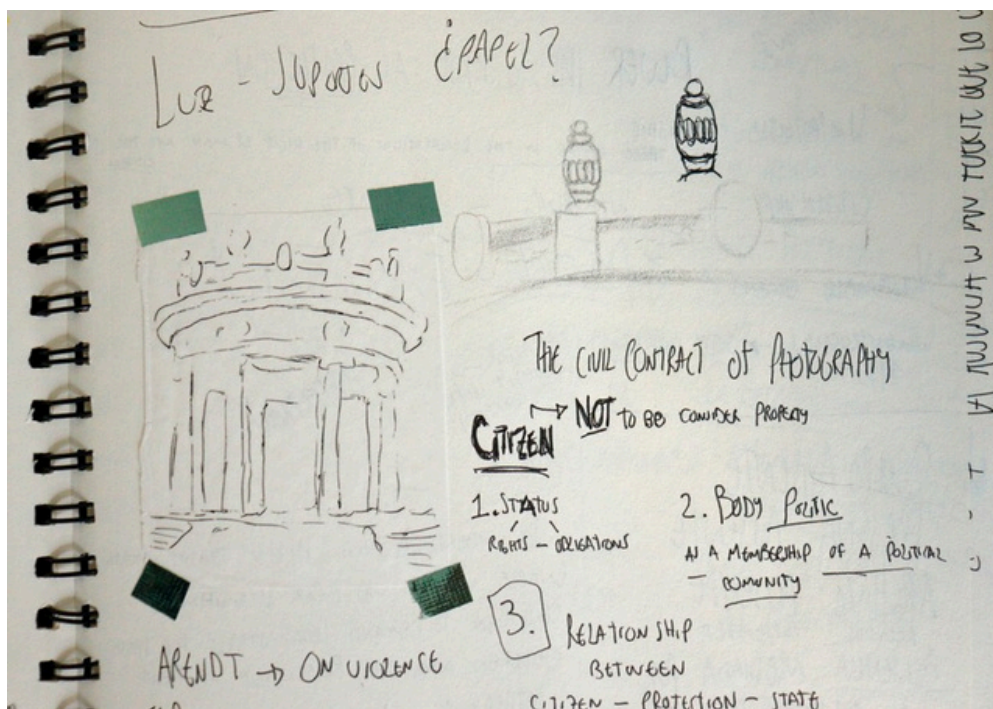 LUZ - SUPORTES ¿PAPEL?
THE CIVIL CONTRACT OF PHOTOGRAPHY
CITIZEN → NOT TO BE CONSIDER PROPERTY
1. STATUS
RIGHTS - OBLIGATIONS
2. BODY POLITIC
AS A MEMBERSHIP OF A POLITICAL
COMUNITY
3. RELATIONSHIP
BETWEEN
CITIZEN - PROTECTION - STATE
ARENDT → ON VIOLENCE